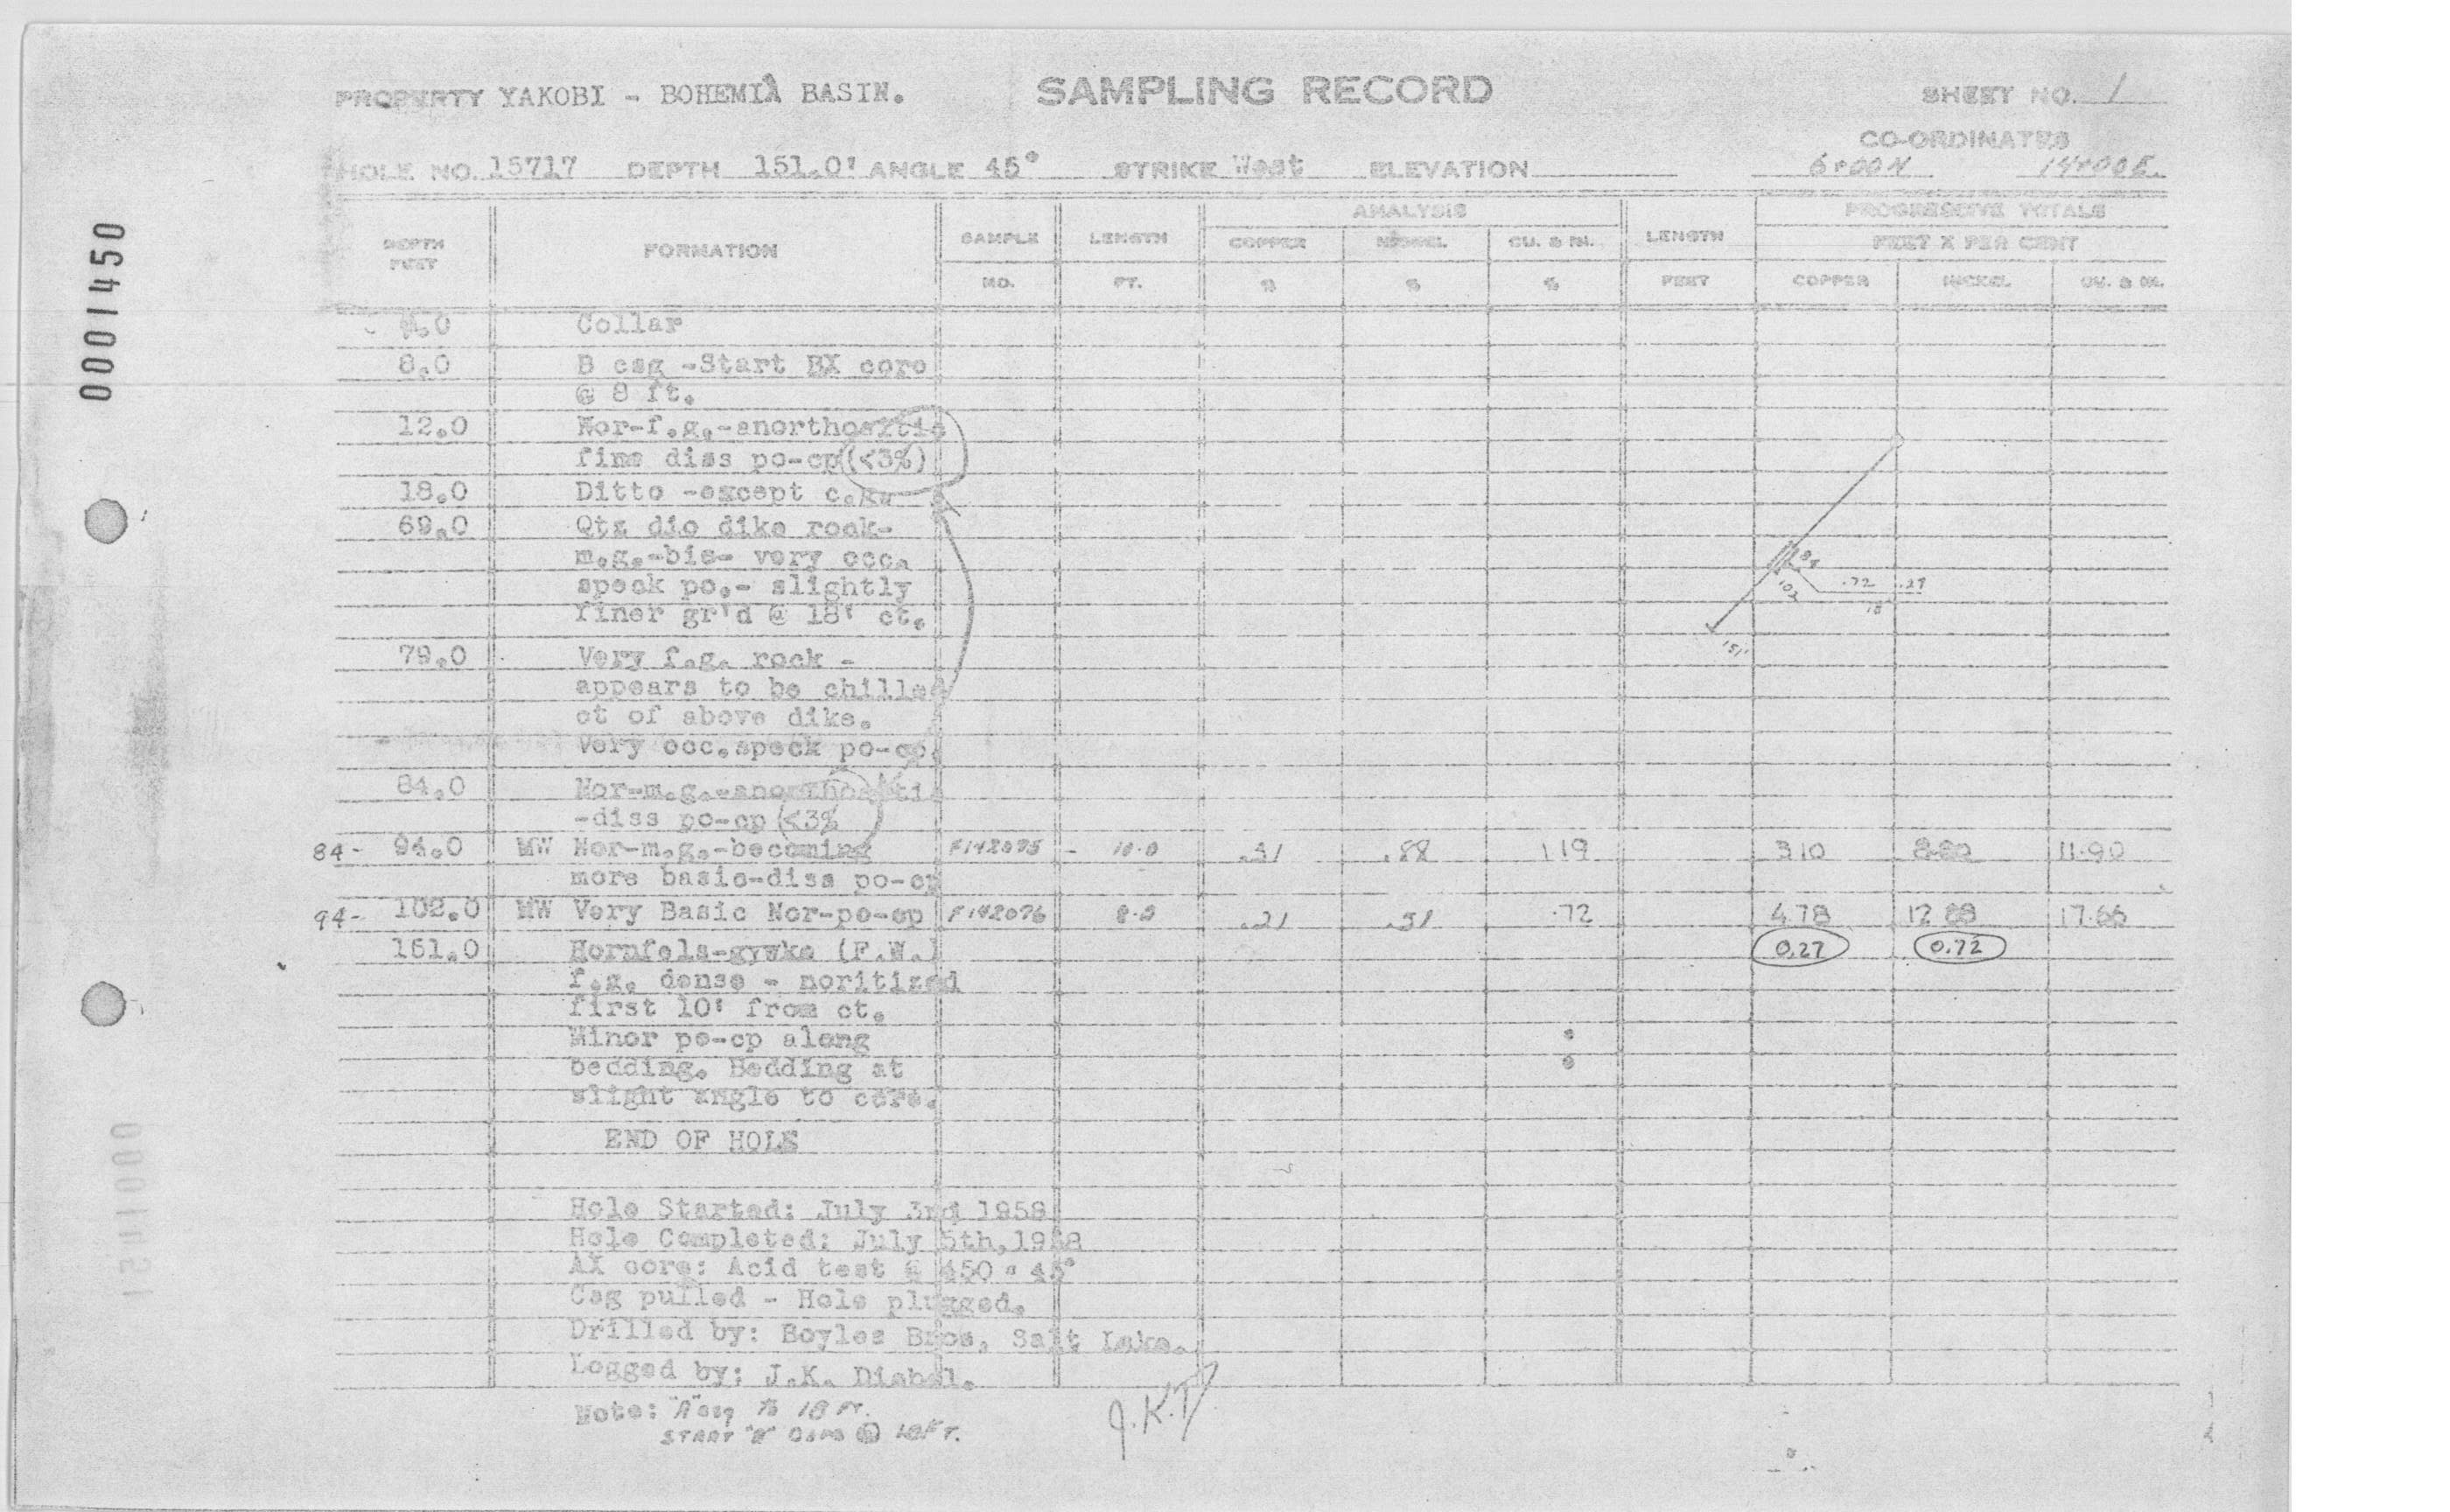 PROPERTY YAKOBI - BOHEMIA BASIN. SAMPLING RECORD SHEET NO. 1
CO-ORDINATES
HOLE NO. 15717 DEPTH 151.0' ANGLE 45° STRIKE West ELEVATION 6+00N 14+00E
0001450
DEPTH FEET FORMATION SAMPLE NO. LENGTH FT. ANALYSIS COPPER % NICKEL % CU. & NI. % LENGTH FEET PROGRESSIVE TOTALS FEET X PER CENT COPPER NICKEL CU. & NI.
Collar
8.0 B csg -Start BX core
@ 8 ft.
12.0 Nor-f.g.-anorthositic
fine diss po-cp (<3%)
18.0 Ditto -except c.g.
69.0 Qtz dio dike rock-
m.g.-bio- very occ.
speck po.- slightly
finer gr'd @ 18' ct.
79.0 Very f.g. rock -
appears to be chilled
ct of above dike.
Very occ.speck po-cp.
84.0 Nor-m.g.-anorthositic
-diss po-cp (<3%
84- 94.0 MW Nor-m.g.-becoming F142075 - 10.0 .31 .88 1.19 3.10 8.80 11.90
more basic-diss po-cp
94- 102.0 MW Very Basic Nor-po-cp F142076 8.0 .21 .51 .72 4.78 12.88 17.66
151.0 Hornfels-gywke (F.W.) 0.27 0.72
f.g. dense - noritized
first 10' from ct.
Minor po-cp along
bedding. Bedding at
slight angle to core.
END OF HOLE
102
.72 .27
18
151'
Hole Started: July 3rd 1958
Hole Completed: July 5th,1958
AX core: Acid test @ 150 = 45°
Csg pulled - Hole plugged.
Drilled by: Boyles Bros, Salt Lake.
Logged by: J.K. Diebel.
Note: "A" csg to 18 FT.
START "A" CORE @ 18 FT.
J.K.D